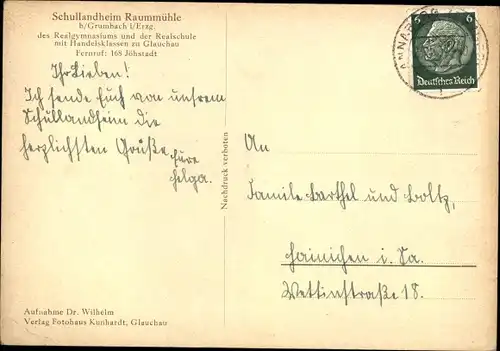 Schullandheim Raummühle
b/Grumbach i/Erzg.
des Realgymnasiums und der Realschule
mit Handelsklassen zu Glauchau
Fernruf: 168 Jöhstadt
Ihr Lieben!
Ich sende Euch von unsrem
Schullandheim die
herzlichsten Grüße
Eure
Helga.
Nachdruck verboten
6 6
Deutsches Reich
An
Familie Barthel und Boltz,
Hainichen i. Sa.
Wettinstraße 18.
Aufnahme Dr. Wilhelm
Verlag Fotohaus Kunhardt, Glauchau